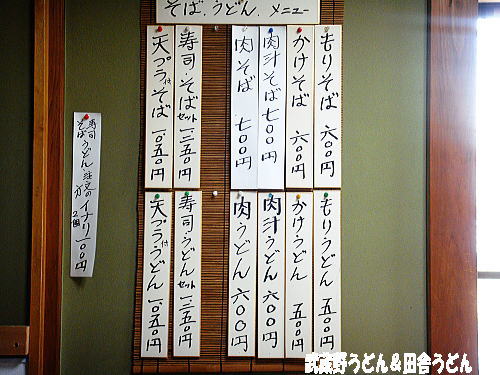 そば.うどん.メニュー
もりそば 六〇〇円
かけそば 六〇〇円
肉汁そば 七〇〇円
肉そば 七〇〇円
寿司・そばセット 一三五〇円
天プラ付そば 一〇五〇円
もりうどん 五〇〇円
かけうどん 五〇〇円
肉汁うどん 六〇〇円
肉うどん 六〇〇円
寿司・うどんセット 一三五〇円
天プラ付うどん 一〇五〇円
寿司
そばうどん注文の方 イナリ 2個 一〇〇円
武蔵野うどん&田舎うどん